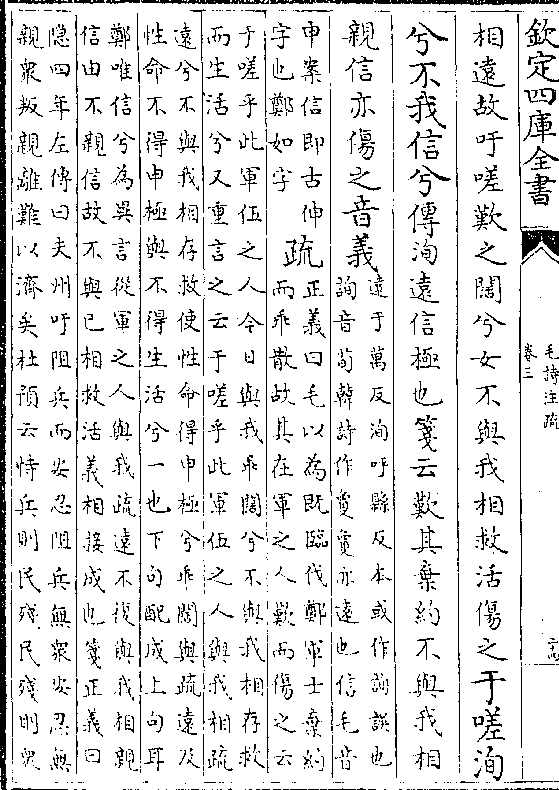 欽定四庫全書
毛詩注疏
卷三
相遠故吁嗟歎之闊兮女不與我相救活傷之于嗟洵
兮不我信兮傳洵遠信極也箋云歎其棄約不與我相
親信亦傷之音義
遠于萬反洵吁縣反本或作詢誤也
詢音荀韓詩作敻敻亦遠也信毛音
申案信即古伸
字也鄭如字
疏
正義曰毛以為既臨伐鄭軍士棄約
而乖散故其在軍之人歎而傷之云
于嗟乎此軍伍之人今日與我乖闊兮不與我相存救
而生活兮又重言之云于嗟乎此軍伍之人與我相疏
遠兮不與我相存救使性命得申極兮乖闊與疏遠及
性命不得申極與不得生活兮一也下句配成上句耳
鄭唯信兮為異言從軍之人與我疏遠不復與我相親
信由不親信故不與已相救活義相接成也箋正義曰
隐四年左傳曰夫州吁阻兵而安忍阻兵無衆安忍無
親衆叛親離難以濟矣杜預云恃兵則民殘民殘則衆